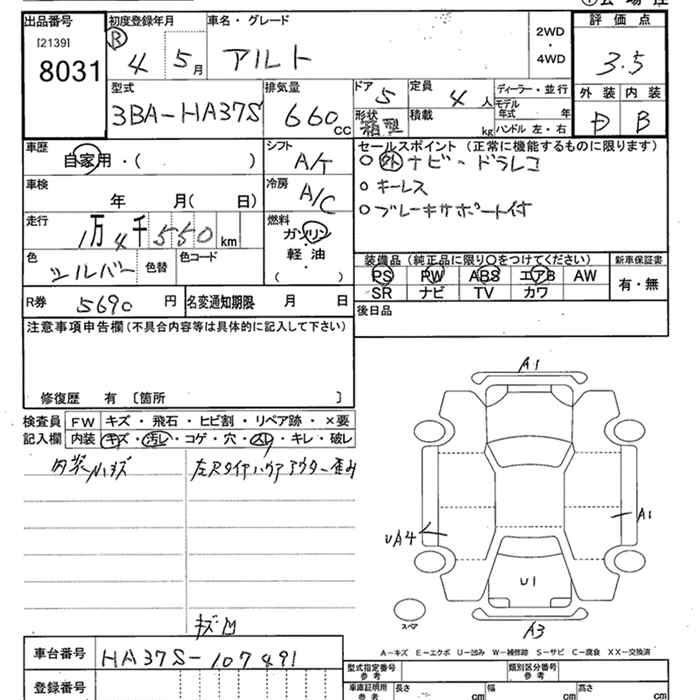 出品番号 初度登録年月 車名・グレード 2WD・4WD 評価点
[2139] 8031 R 4 5月 アルト 3.5
型式 排気量 ドア 定員 ディーラー・並行 外装 内装
3BA-HA37S 660cc 5 4人 モデル年式 年 B
形状 箱型 積載 kg ハンドル 左・右
車歴 自家用・( ) シフト A/T セールスポイント(正常に機能するものに限ります)
○外ナビ・ドラレコ
車検 年 月( 日) 冷房 A/C ○キーレス
○ブレーキサポート付
走行 1万4千550km 燃料 ガソリン
軽油
( )
色 シルバー 色替 色コード
装備品(純正品に限り○をつけてください) 新車保証書
PS PW ABS エアB AW 有・無
SR ナビ TV カワ
R券 5690円 名変通知期限 月 日 後日品
注意事項申告欄(不具合内容等は具体的に記入して下さい)
修復歴 有 〔箇所 〕
検査員 FW キズ・飛石・ヒビ割・リペア跡・×要
記入欄 内装 キズ・汚レ・コゲ・穴・スレ・キレ・破レ
内装小キズ
キズ凹
A1
A1
UA4
U1
A3
スペア
A-キズ E-エクボ U-凹み W-補修跡 S-サビ C-腐食 XX-交換済
車台番号 HA37S-107491
登録番号
型式指定番号 参考 類別区分番号 参考
車庫証明用 参考 長さ cm 幅 cm 高さ cm